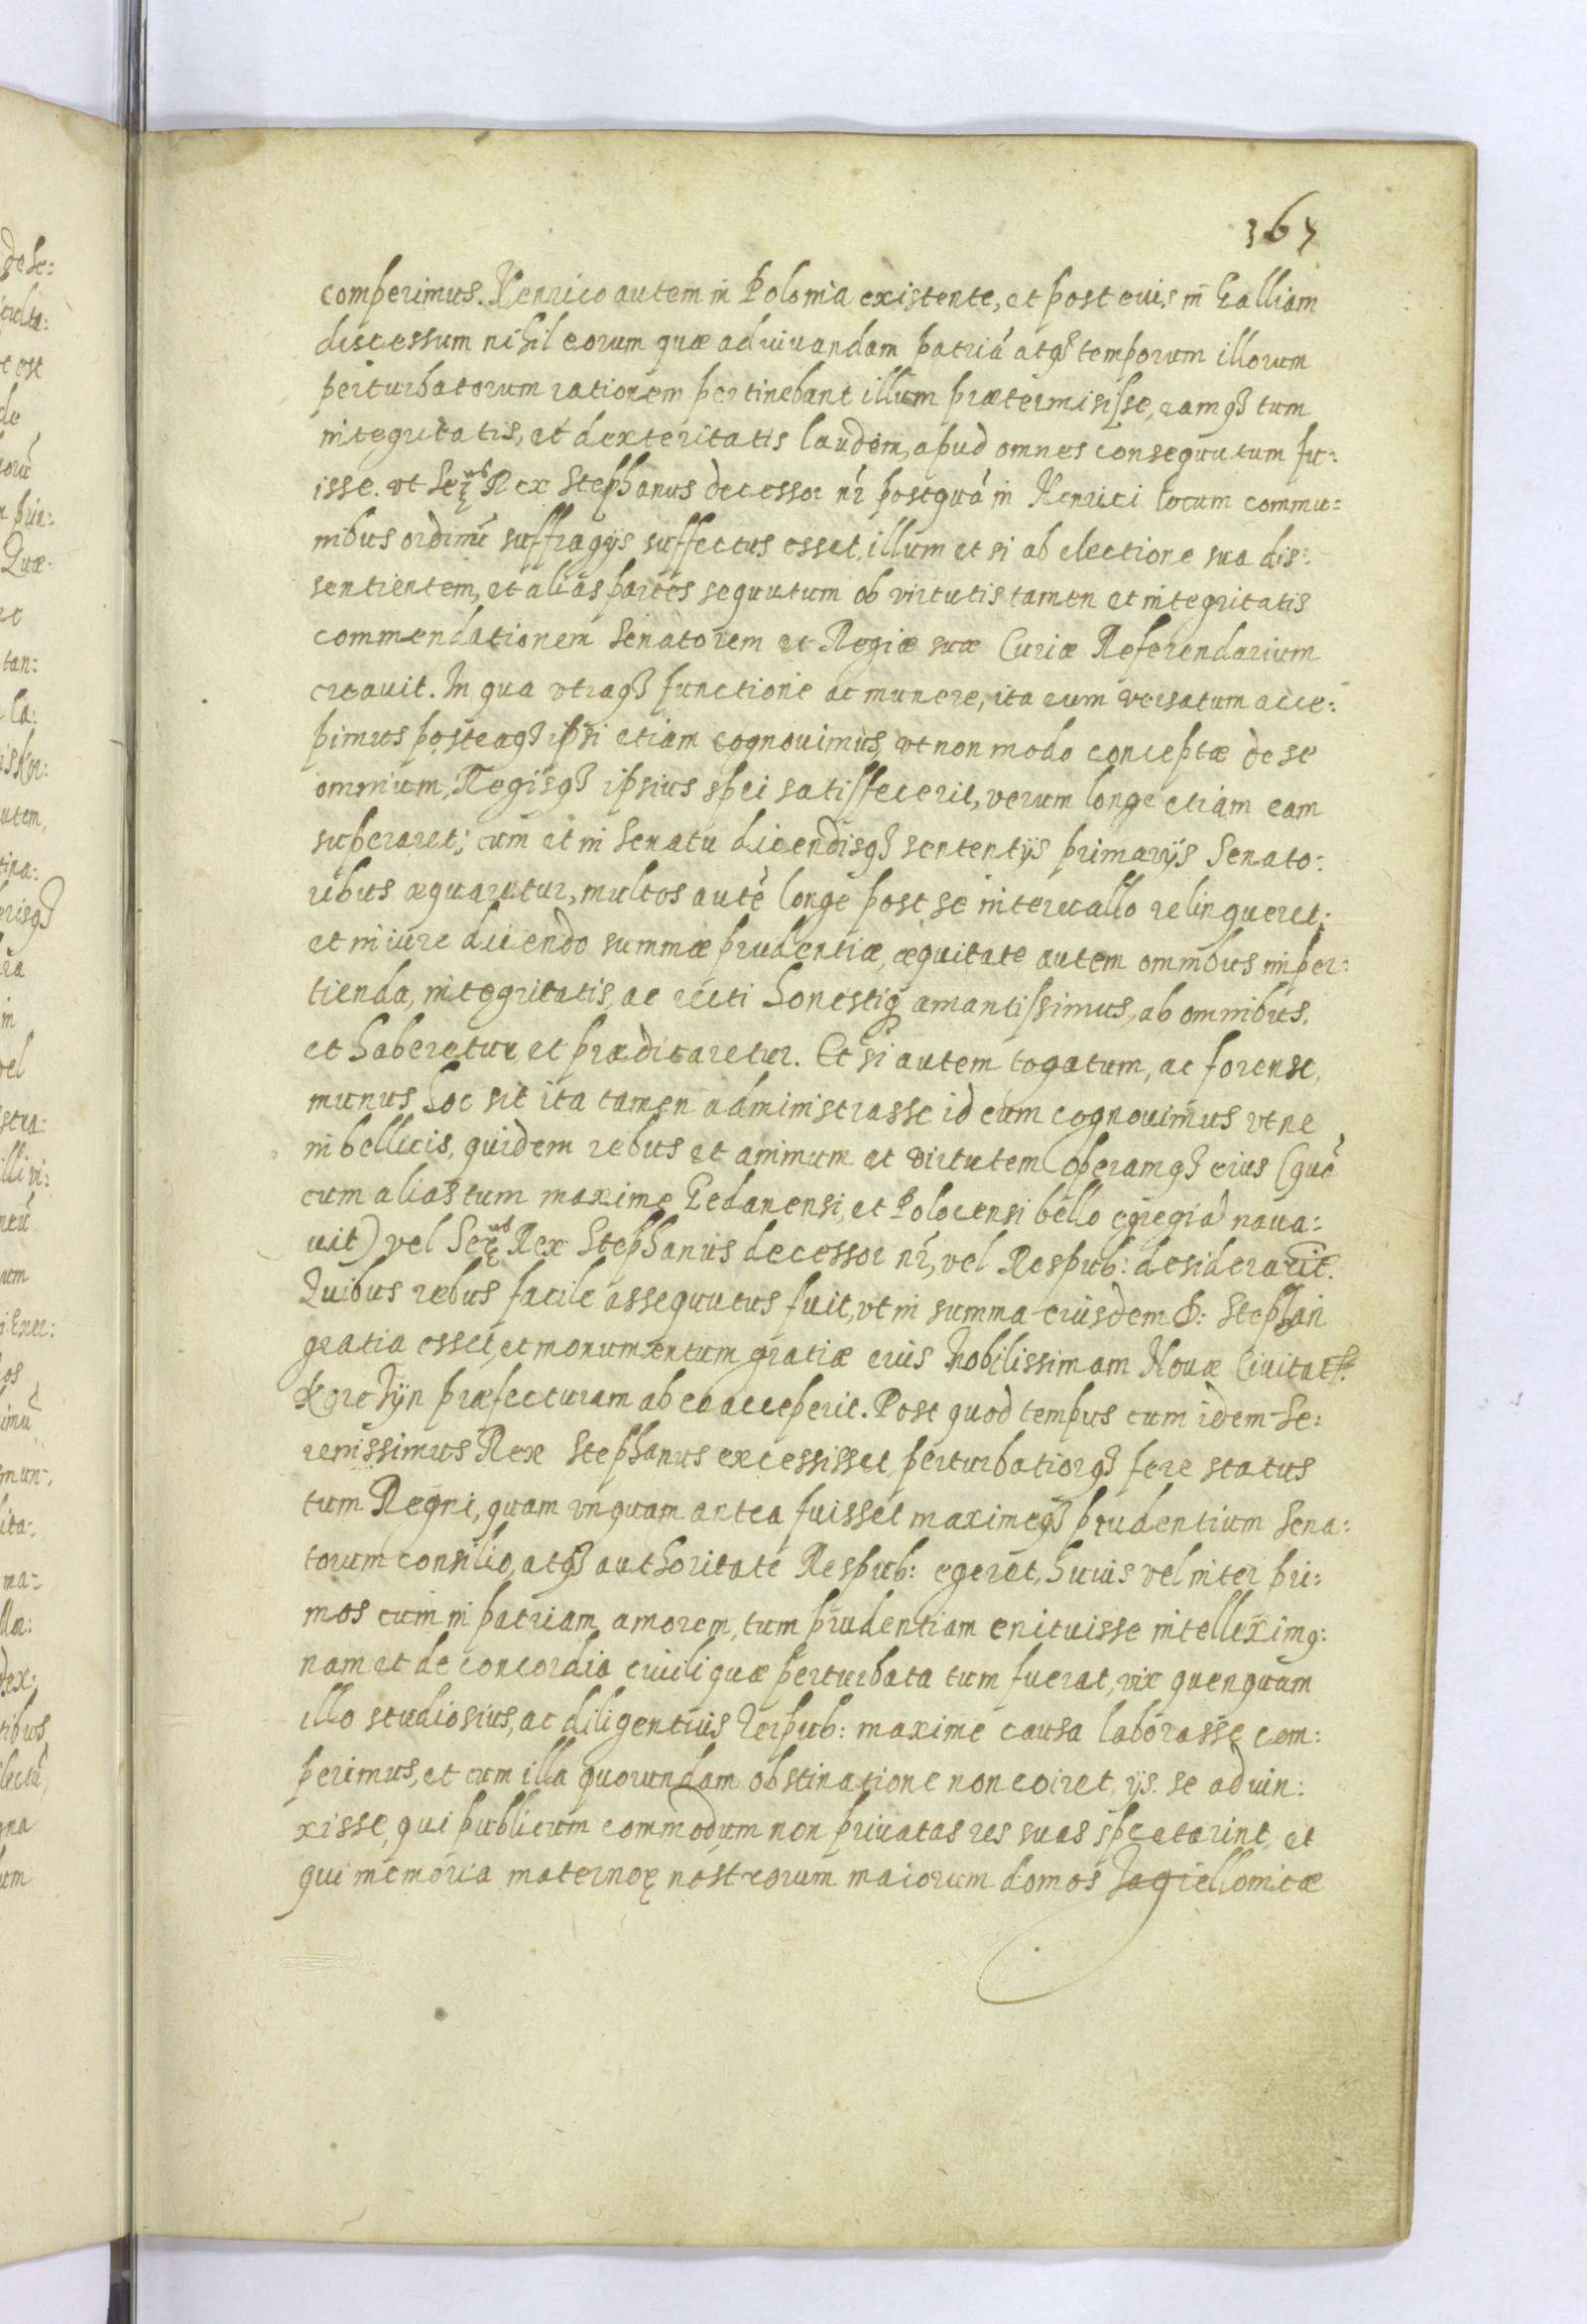 367
comperimus. Henrico autem in Polonia existente, et post euis in Galliam
discessum nihil eorum quæ ad iuuandam patriã atq3 temporum illorum
perturbatorum rationem pertinebant illum prætermisisse, eamq3 tum
integritatis, et dexteritatis laudem, apud omnes consequutum fu:
isse. vt Ser.mus Rex Stephanus decessor nr̃ postquã in Henrici locum commu:
nibus ordinũ suffragijs suffectus esset, illum et si ab electione sua dis:
sentientem, et alias partes sequutum ob virtutis tamen et integritatis
commendationem Senatorem et Regiæ suæ Curiæ Referendarium
creauit. In qua vtraq3 functione ac munere, ita eum versatum acce:
pimus posteaq3 ipsi etiam cognouimus, vt non modo conceptæ de se
omnium, Regisq3 ipsius spei satisfecerit, verum longe etiam eam
superaret; cum et in Senatu dicendisq3 sententijs primarijs Senato:
ribus æquaretur, multos autẽ longe post se interuallo relinqueret;
et in iure dicendo summæ prudentiæ, æquitate autem omnibus imper:
tienda, integritatis, ac recti honestiq3 amantissimus, ab omnibus.
et haberetur et prædicaretur. Et si autem togatum, ac forense,
munus hoc sit ita tamen administrasse id eum cognouimus vt ne
in bellicis, quidem rebus et animum et virtutem operamq3 eius (quã
cum alias tum maxime Gedanensi, et Polocensi bello egregiã naua:
uit) vel Ser.mus Rex Stephanus decessor nr̃, vel Respub: desiderarit.
Quibus rebus facile assequutus fuit, vt in summa eiusdem D: Stephan
gratia esset, et monumentum gratiæ euis Nobilissimam Nouæ Ciuitat:
Korchÿn præfecturam ab eo acceperit. Post quod tempus cum idem Se:
renissimus Rex Stephanus excessisset perturbatiorq3 fere status
tum Regni, quam vnquam antea fuisset maximeq3 prudentium Sena:
torum consilio, atq3 authoritate Respub: egeret, huius vel inter pri:
mos cum in patriam amorem, tum prudentiam enituisse intelleximq:
nam et de concordia ciuili quæ perturbata tum fuerat, vix quenquam
illo studiosius, ac diligentius Reipub: maxime causa laborasse com:
perimus, et cum illa quorundam obstinatione non coiret, ijs se adiun:
xisse, qui publicum commodum non priuatas res suas spectarint, et
qui memoria maternoꝝ nostrorum maiorum domos Jagiellonicæ